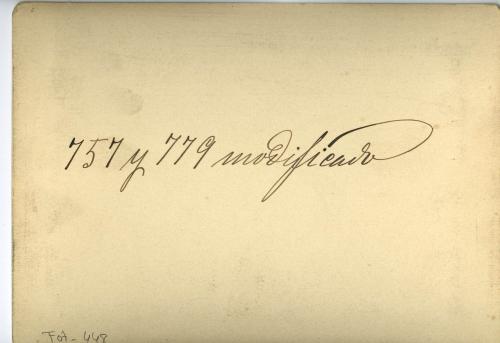 757 y 779 modificado
Fot - 448